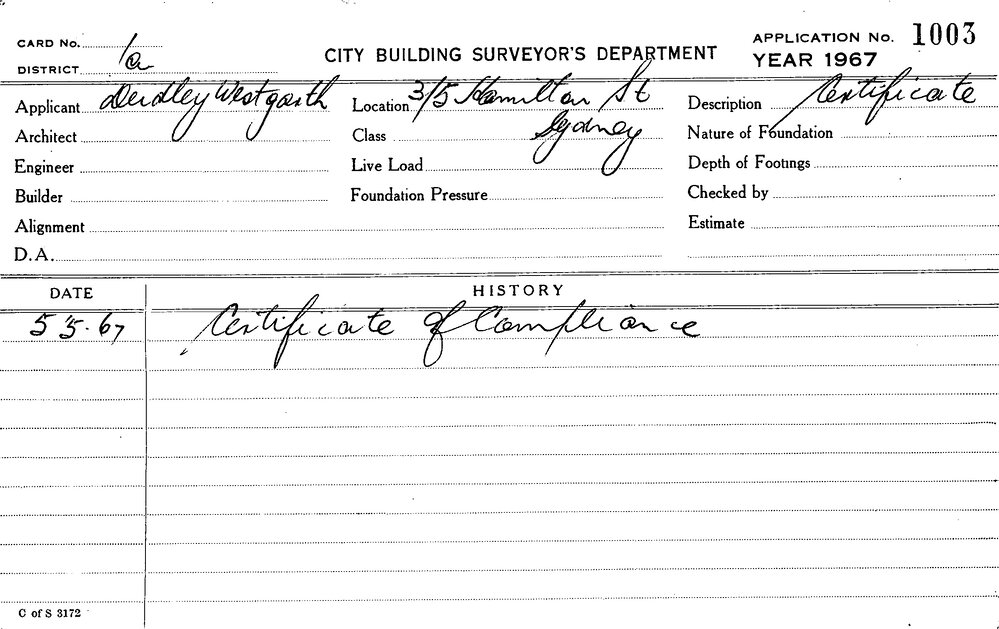 CARD No.
DISTRICT 1a
CITY BUILDING SURVEYOR'S DEPARTMENT
APPLICATION No. 1003
YEAR 1967
Applicant Dudley Westgarth
Architect
Engineer
Builder
Alignment
D.A.
Location 3/5 Hamilton St
Class Sydney
Live Load
Foundation Pressure
Description Certificate
Nature of Foundation
Depth of Footings
Checked by
Estimate
DATE HISTORY
5.5.67 Certificate of Compliance
C of S 3172